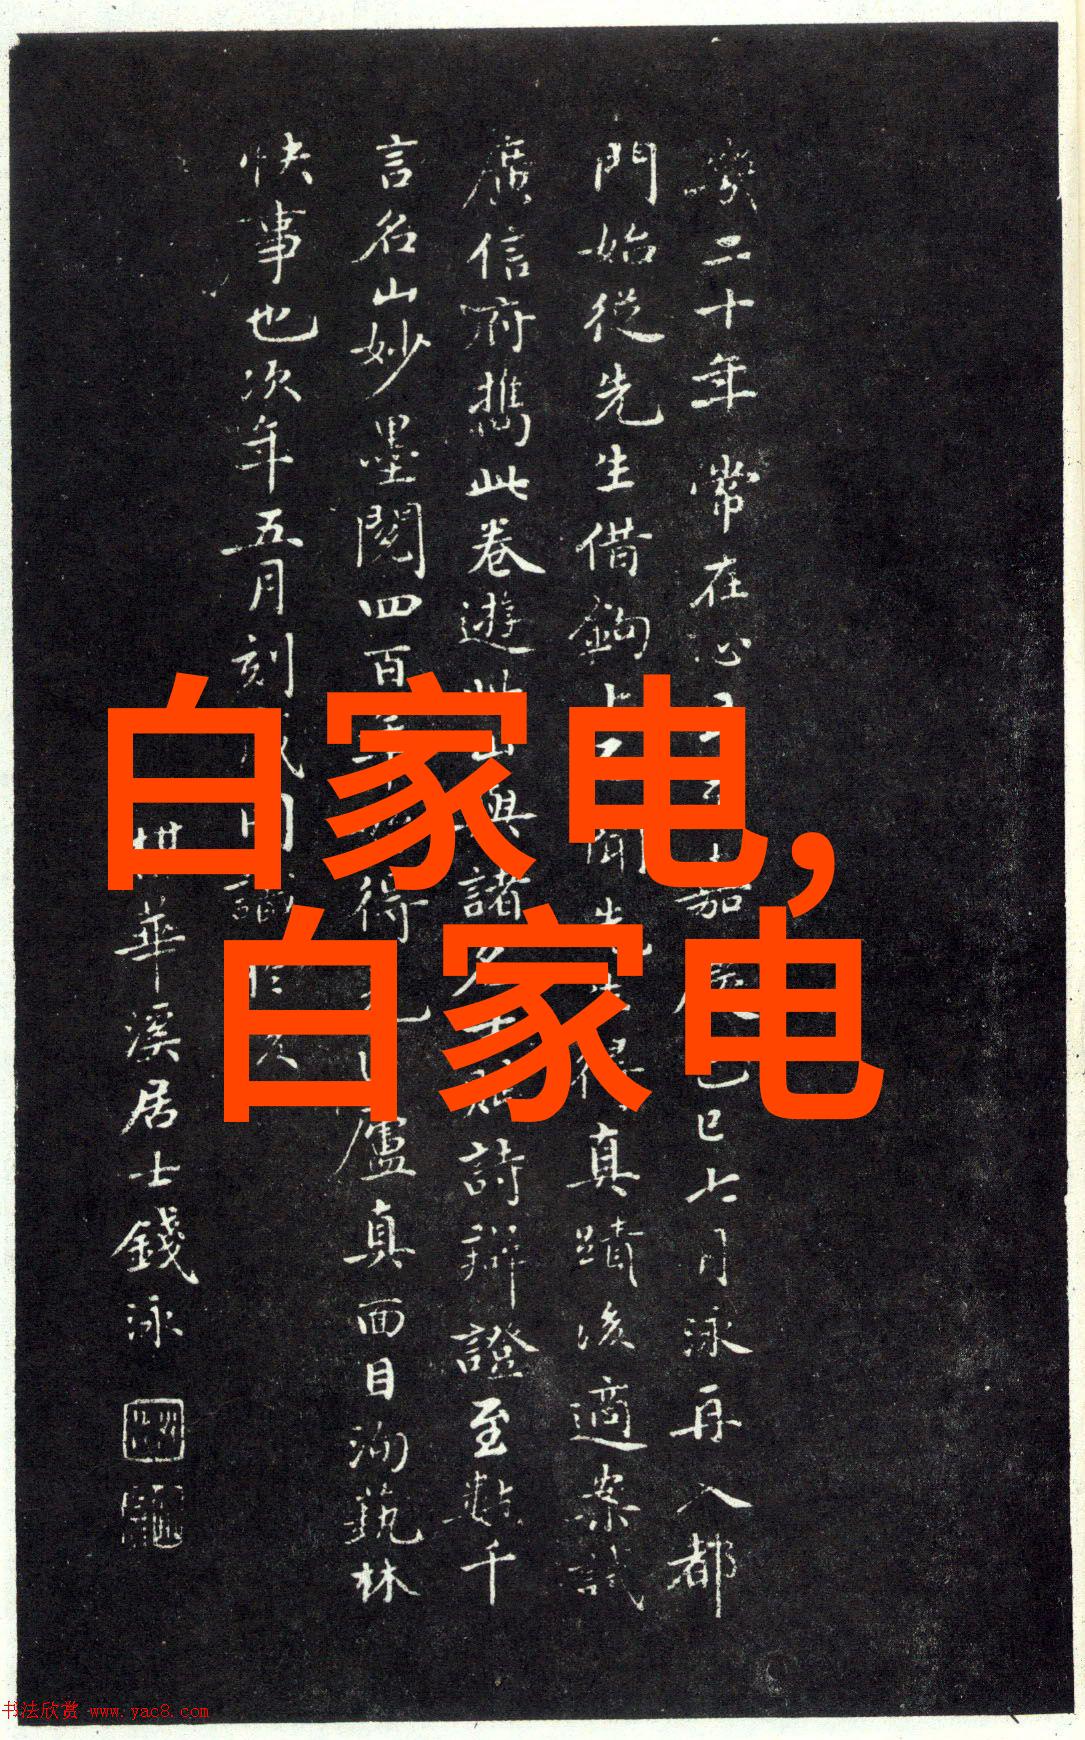 幾二十年常在心
嘉
已巳七月泳再入都
門始從先生借鉤
真蹟後適案試
廣信府攜此卷遊
此山與諸名士賦詩辯證至數千
言名山妙墨閱四百年
得
廬真面目洵藝林
快事也次年五月刻成同
識
華溪居士錢泳
白家电,
白家电
书法欣赏 www.yac8.com